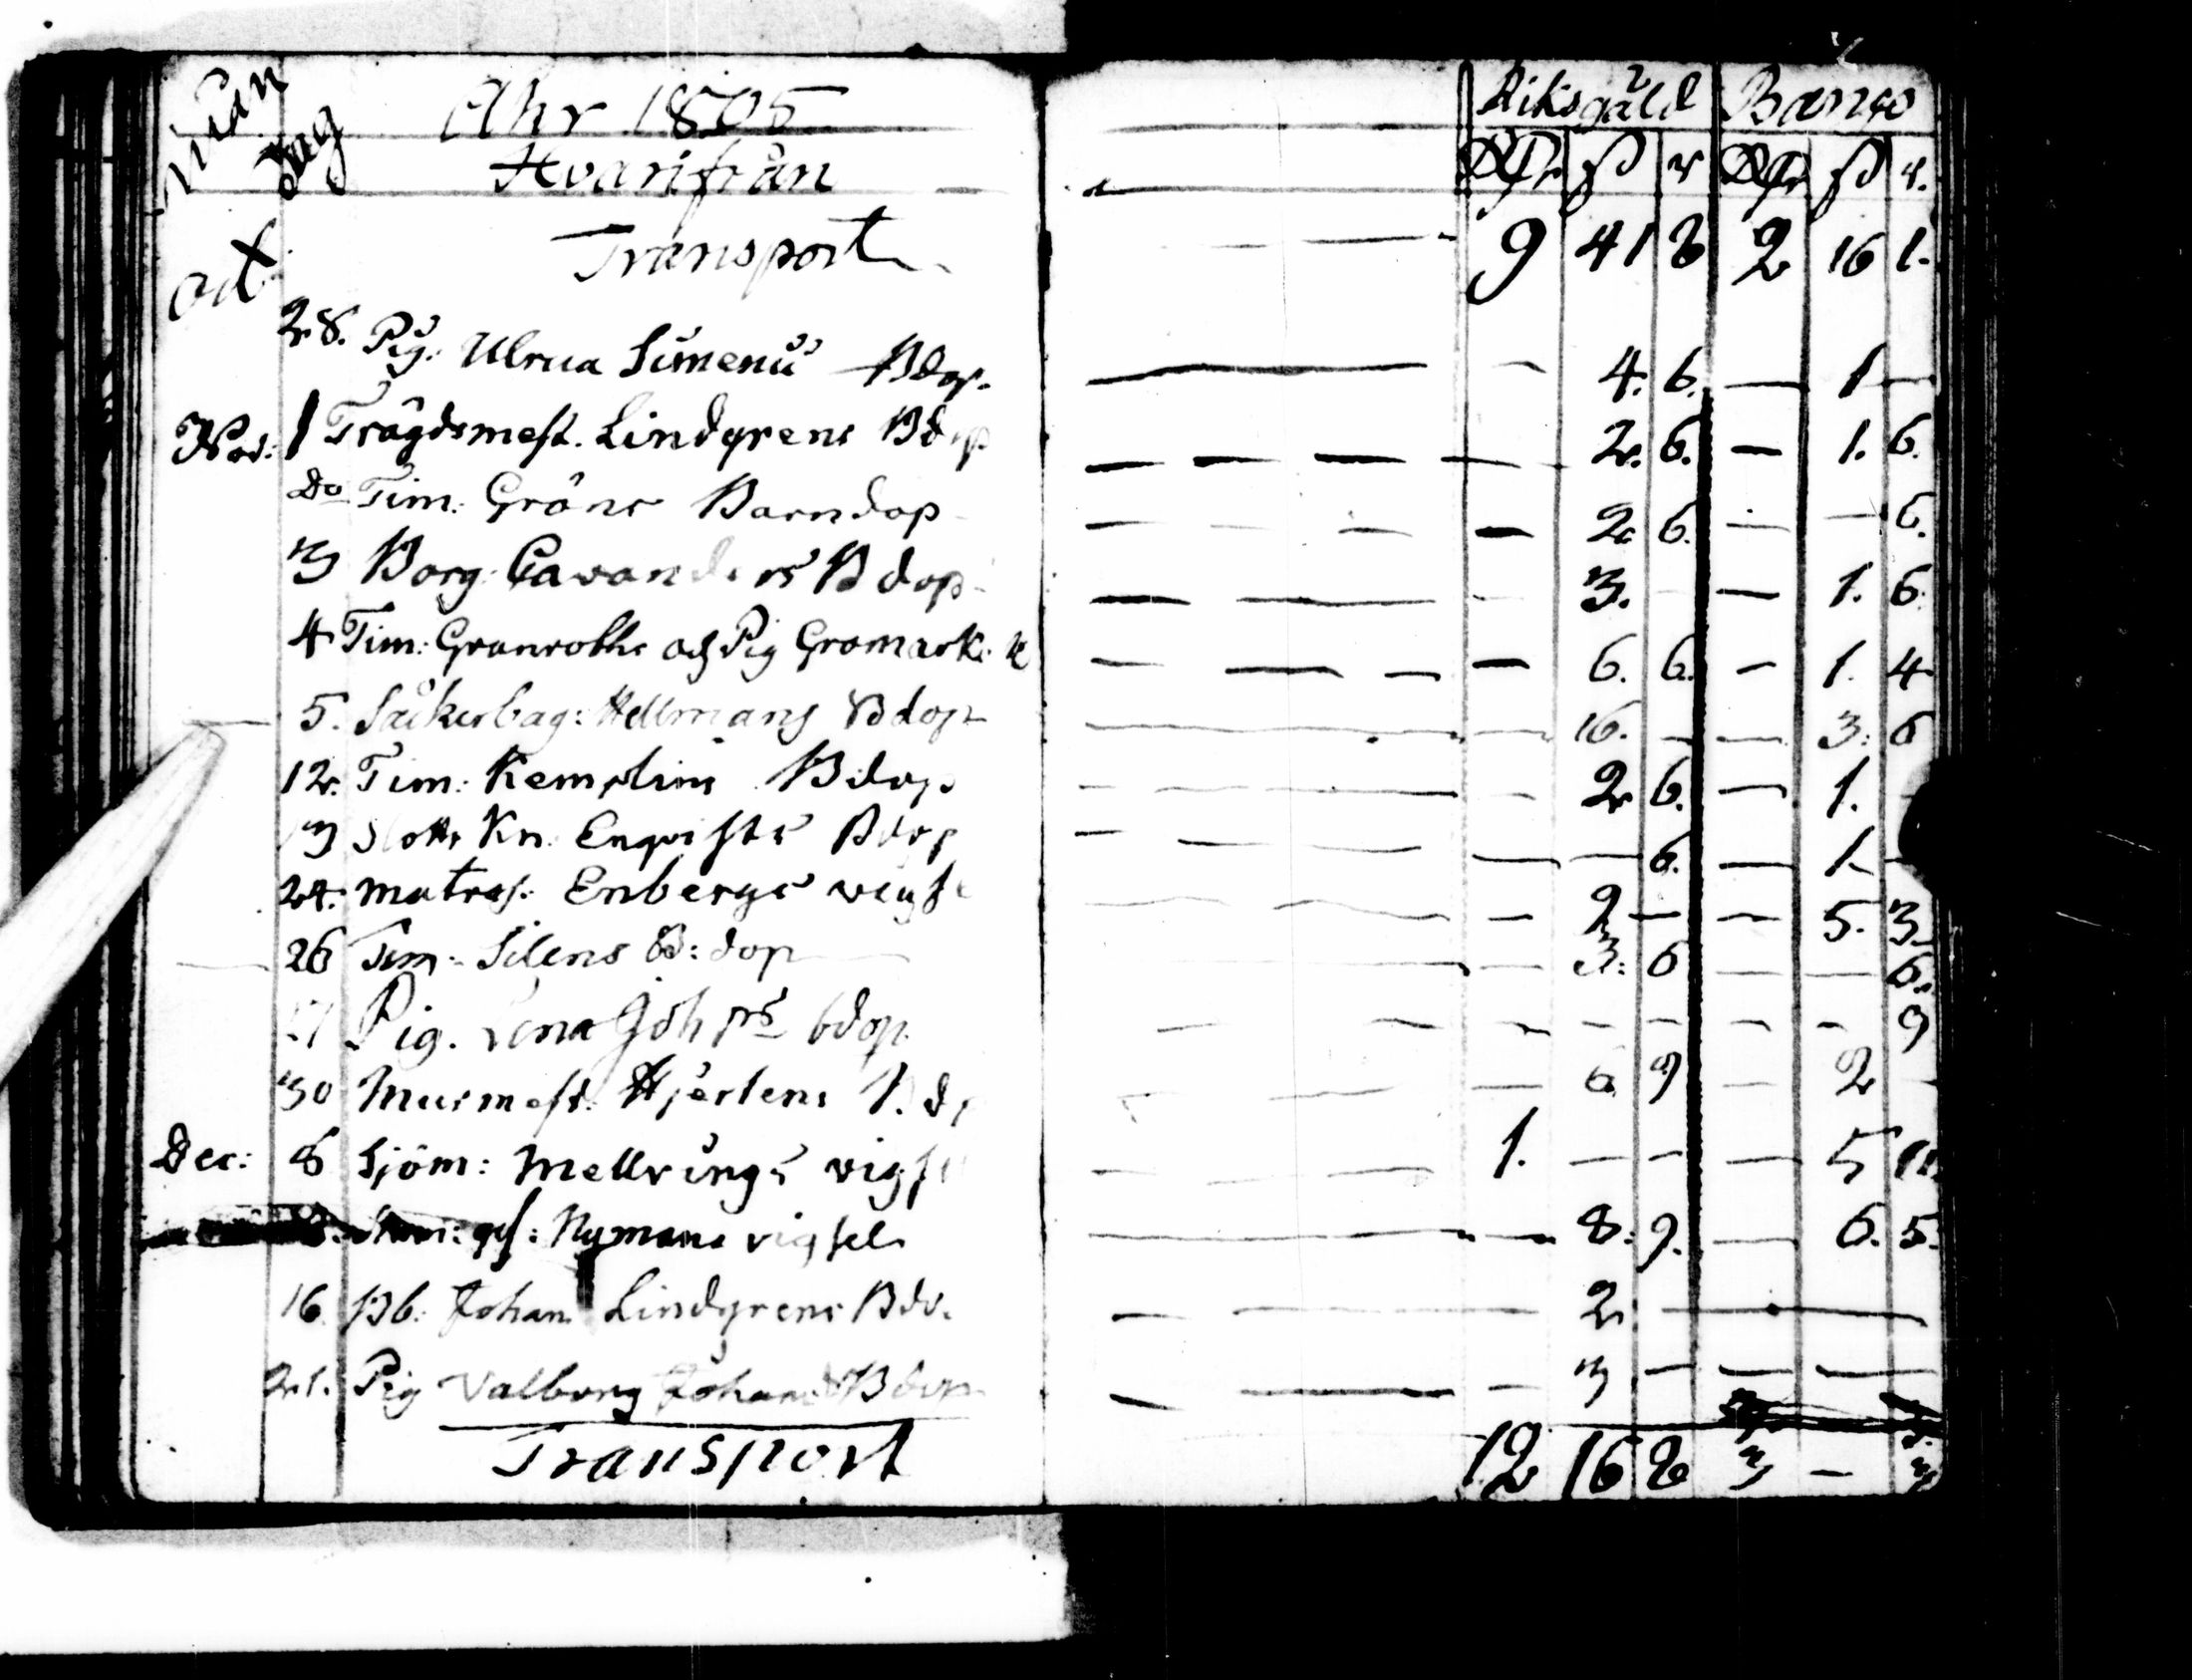 Mån Dag Ahr 1805 Riksgäld Banco
Hvarifrån Rdr ß r Rdr ß r.
Oct. Transport 9 41 8 2 16 1.
28. Pig: Ulrica Simenii Bdop. — 4. 6. — 1 —
Nov: 1 Trägdsmest. Lindgrens Bdop — 2. 6. — 1. 6.
Do Tim: Gröns Barndop — 2 6. — — 6.
3 Borg: Bdop — 3. — — 1. 6.
4 Tim: Granroths och Pig Gromark: — 6. 6. — 1. 4
5. Såkerbag: Hellmans Bdop — 16. — — 3: 6
12. Tim: Kemplins Bdop — 2 6. — 1.
13 Slotts Kn: Enqvists Bdop — — 6. — 1. —
24. Matros: Enbergs vigsel — 2 — — 5. 3
26 Tim: Silens B: dop — 3: 6 — — 6.
27 Pig. Lena Joh prs bdop — — — — — 9
30 Murmest: Hjertens B. dop — 6 9 — 2
Dec: 8 Sjöm: Mellrings vigsel 1. — — — 5 11.
ges: Nymans vigsel — 8: 9. — 6. 5.
16 Bb: Johan Lindgrens Bdo. — 2 —
21. Pig Valborg Johans Bdop — 3 — — —
Transport 12 16 8 3 — 3